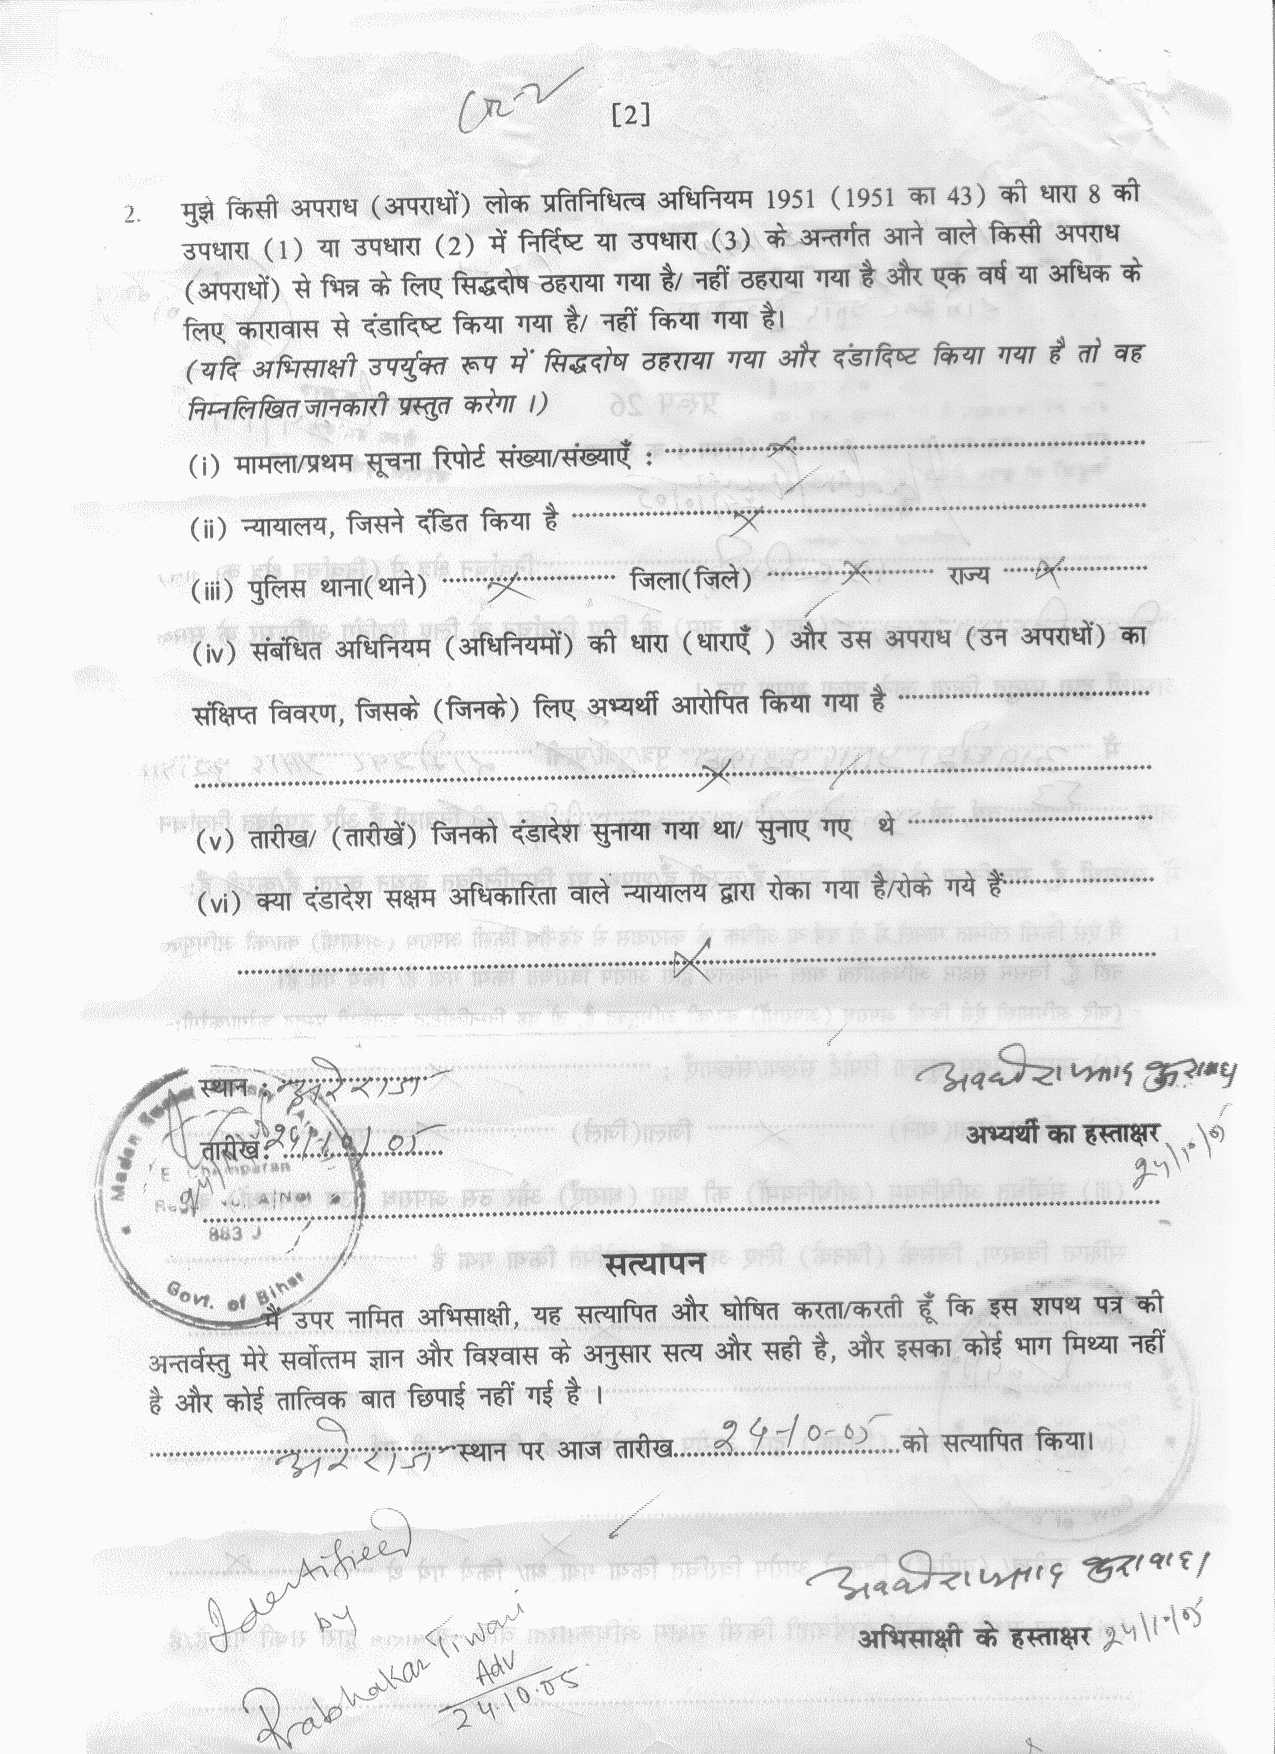 [2]
2. मुझे किसी अपराध (अपराधों) लोक प्रतिनिधित्व अधिनियम 1951 (1951 का 43) की धारा 8 की
उपधारा (1) या उपधारा (2) में निर्दिष्ट या उपधारा (3) के अन्तर्गत आने वाले किसी अपराध
(अपराधों) से भिन्न के लिए सिद्धदोष ठहराया गया है/ नहीं ठहराया गया है और एक वर्ष या अधिक के
लिए कारावास से दंडादिष्ट किया गया है/ नहीं किया गया है।
(यदि अभिसाक्षी उपर्युक्त रूप में सिद्धदोष ठहराया गया और दंडादिष्ट किया गया है तो वह
निम्नलिखित जानकारी प्रस्तुत करेगा ।)
(i) मामला/प्रथम सूचना रिपोर्ट संख्या/संख्याएँ : x
(ii) न्यायालय, जिसने दंडित किया है x
(iii) पुलिस थाना(थाने) x जिला(जिले) x राज्य x
(iv) संबंधित अधिनियम (अधिनियमों) की धारा (धाराएँ ) और उस अपराध (उन अपराधों) का
संक्षिप्त विवरण, जिसके (जिनके) लिए अभ्यर्थी आरोपित किया गया है
x
(v) तारीख/ (तारीखें) जिनको दंडादेश सुनाया गया था/ सुनाए गए थे
(vi) क्या दंडादेश सक्षम अधिकारिता वाले न्यायालय द्वारा रोका गया है/रोके गये हैं
x
स्थान : अरेराज
तारीखें: 24/10/05
अवधेश प्रसाद कुशवाहा
अभ्यर्थी का हस्ताक्षर
24/10/05
Madan
E Champaran
883
Govt. of Bihar
सत्यापन
मैं उपर नामित अभिसाक्षी, यह सत्यापित और घोषित करता/करती हूँ कि इस शपथ पत्र की
अन्तर्वस्तु मेरे सर्वोत्तम ज्ञान और विश्वास के अनुसार सत्य और सही है, और इसका कोई भाग मिथ्या नहीं
है और कोई तात्विक बात छिपाई नहीं गई है ।
अरेराज स्थान पर आज तारीख 24-10-05 को सत्यापित किया।
अवधेश प्रसाद कुशवाहा
अभिसाक्षी के हस्ताक्षर 24/10/05
Identified
by
Prabhakar Tiwari
Adv
24.10.05